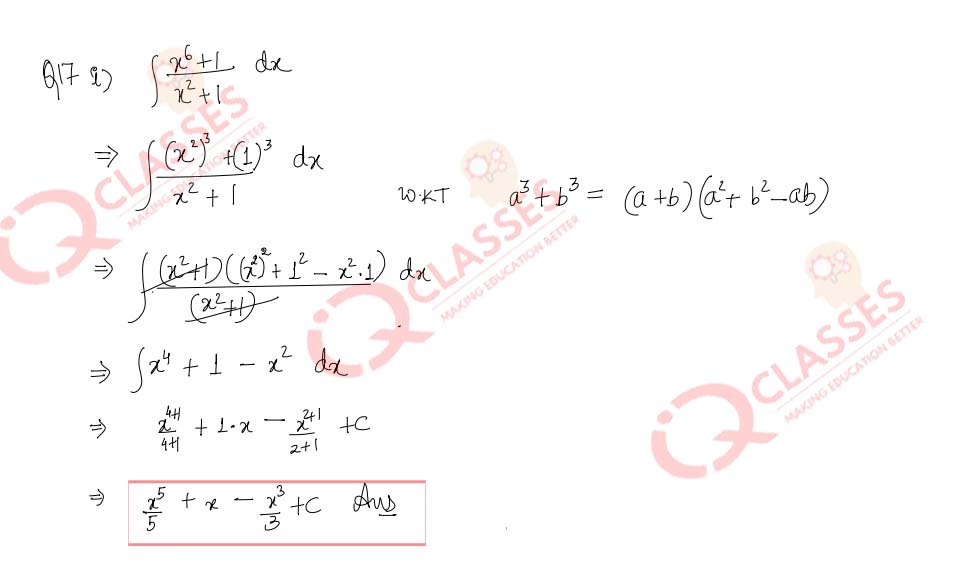 Q17 i) ∫ (x⁶+1)/(x²+1) dx
⇒ ∫ ((x²)³ + (1)³)/(x²+1) dx
W.K.T a³+b³ = (a+b)(a²+b²-ab)
⇒ ∫ (x²+1)((x²)²+1²-x²·1)/(x²+1) dx
⇒ ∫ x⁴ + 1 - x² dx
⇒ x⁴⁺¹/4+1 + 1·x - x²⁺¹/2+1 + C
⇒ x⁵/5 + x - x³/3 + C Ans
IQ CLASSES
MAKING EDUCATION BETTER
IQ CLASSES
MAKING EDUCATION BETTER
IQ CLASSES
MAKING EDUCATION BETTER